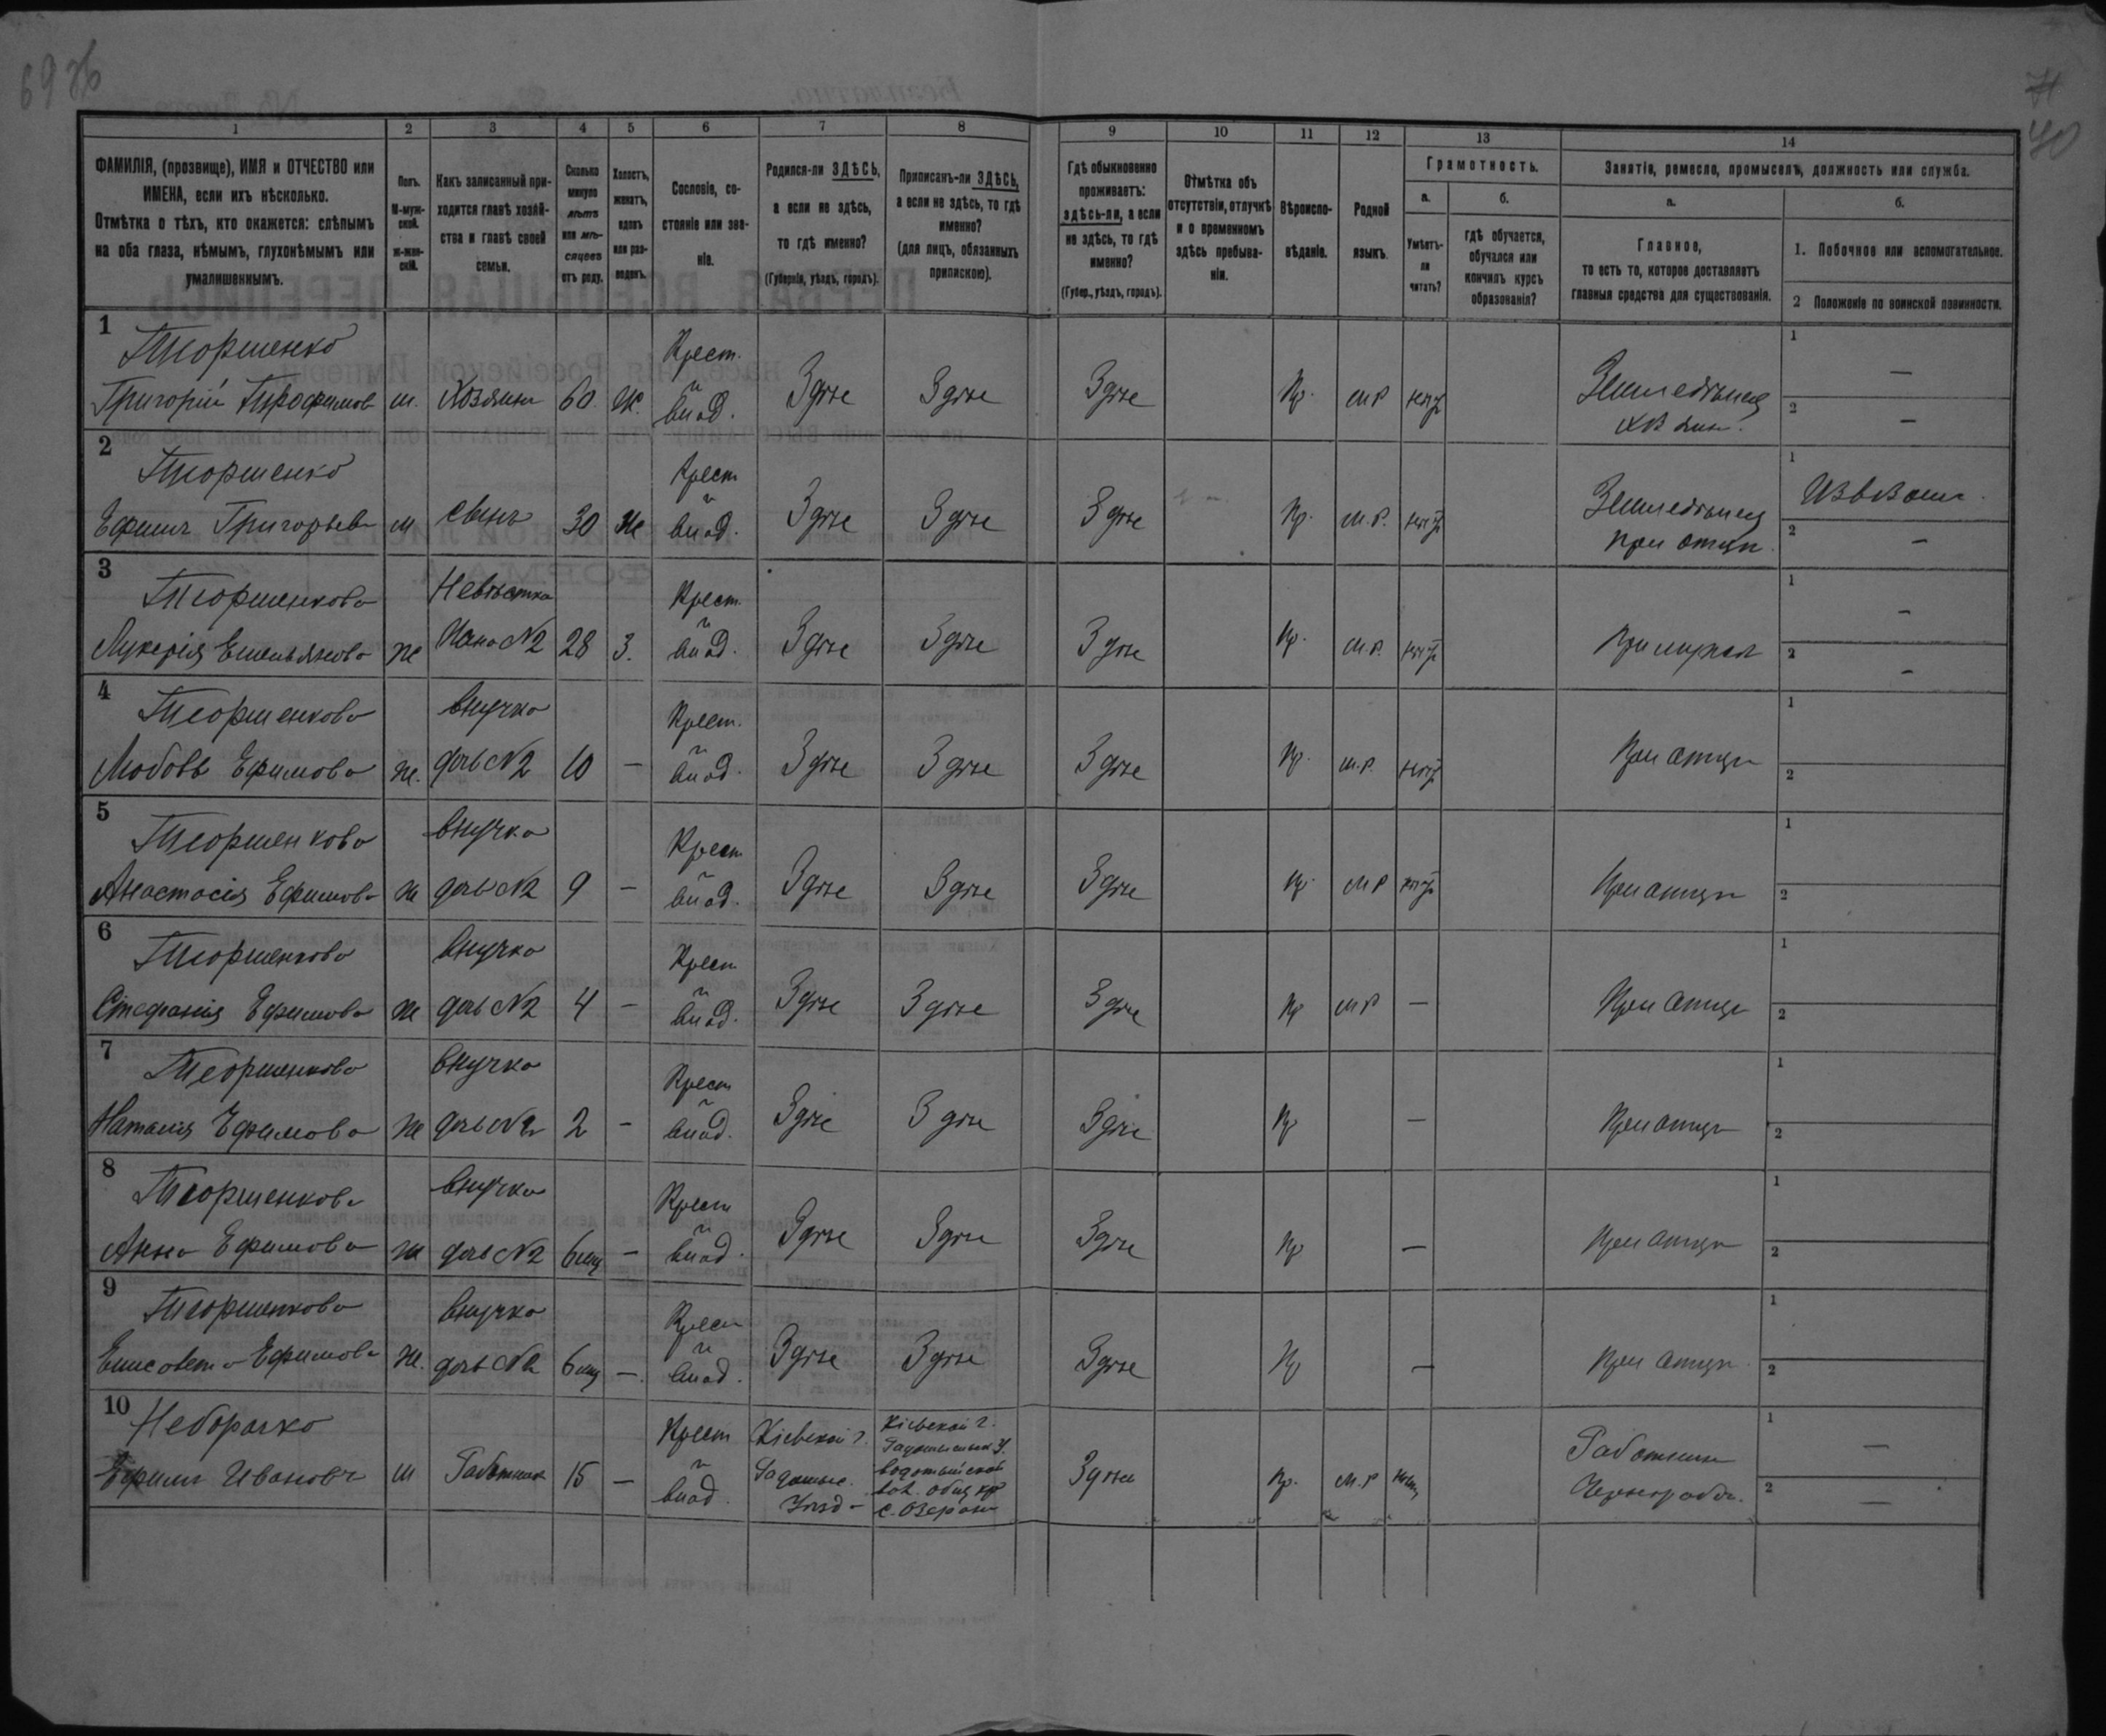 69 об
71
40
1
2
3
4
5
6
7
8
9
10
11
12
13
14
ФАМИЛІЯ, (прозвище), ИМЯ и ОТЧЕСТВО или
ИМЕНА, если ихъ нѣсколько.
Отмѣтка о тѣхъ, кто окажется: слѣпымъ
на оба глаза, нѣмымъ, глухонѣмымъ или
умалишеннымъ.
Полъ.
М-муж-
ской.
ж-жен-
скій.
Какъ записанный при-
ходится главѣ хозяй-
ства и главѣ своей
семьи.
Сколько
минуло
лѣтъ
или мѣ-
сяцевъ
отъ роду.
Холостъ,
женатъ,
вдовъ
или раз-
веденъ.
Сословіе, со-
стояніе или зва-
ніе.
Родился-ли ЗДѢСЬ,
а если не здѣсь,
то гдѣ именно?
(Губернія, уѣздъ, городъ).
Приписанъ-ли ЗДѢСЬ,
а если не здѣсь, то гдѣ
именно?
(для лицъ, обязанныхъ
припискою).
Гдѣ обыкновенно
проживаетъ:
здѣсь-ли, а если
не здѣсь, то гдѣ
именно?
(Губер., уѣздъ, городъ).
Отмѣтка объ
отсутствіи, отлучкѣ
и о временномъ
здѣсь пребыва-
ніи.
Вѣроиспо-
вѣданіе.
Родной
языкъ.
Грамотность.
а.
Умѣетъ-
ли
читать?
б.
гдѣ обучается,
обучался или
кончилъ курсъ
образованія?
Занятія, ремесло, промыселъ, должность или служба.
а.
Главное,
то есть то, которое доставляетъ
главныя средства для существованія.
б.
1. Побочное или вспомогательное.
2 Положеніе по воинской повинности.
1
Тюрменко Крест. 1 —
Григорій м. Хозяинъ 60. Ж. и влад. Здѣсь Здѣсь Здѣсь Пр. м р нѣтъ Земледѣлецъ 2 —
хозяин.
2
Тюрменко Крест 1 Извозом.
Ефимъ Григорьев м сынъ 30 Ж и влад. Здѣсь Здѣсь Здѣсь Пр. м.р. нѣтъ Земледѣлец 2 —
при отцѣ.
3
Тюрменкова Невѣстка Крест. 1 —
Лукерія Емельянова ж Жена N2 28 З. и влад. Здѣсь Здѣсь Здѣсь Пр. м.р. нѣтъ При мужѣ 2 —
4
Тюрменкова внучка Крест. 1
Любовь Ефимова ж. дочь N2 10 — и влад. Здѣсь Здѣсь Здѣсь Пр. м.р. нѣтъ При отцѣ 2
5
Тюрменкова внучка Крест 1
Анастасія Ефимова ж дочь N2 9 — и влад. Здѣсь Здѣсь Здѣсь Пр. м р нѣтъ При отцѣ 2
6
Тюрменкова внучка Крест 1
Стефанія Ефимова ж дочь N2 4 — и влад. Здѣсь Здѣсь Здѣсь Пр м р — При отцѣ 2
7
Тюрменкова внучка Крест 1
Наталія Ефимова ж дочь N2 2 — и влад. Здѣсь Здѣсь Здѣсь Пр — При отцѣ 2
8
Тюрменкова внучка Крест 1
Анна Ефимова ж дочь N2 6 мц — и влад. Здѣсь Здѣсь Здѣсь Пр — При отцѣ 2
9
Тюрменкова внучка Крест 1
Елисавета Ефимова ж. дочь N2 6 мц —. и влад. Здѣсь Здѣсь Здѣсь Пр — При отцѣ 2
10
Неборачко Крест Кіевской г. Кіевской г. 1 —
Радомысльск у.
Ефимъ Ивановъ м Работник 15 — и влад. Радомыс. Уѣзд — вол. общ кр с. Озеран Здѣсь Пр. м.р нѣтъ Работник 2 —
Чернорабоч.